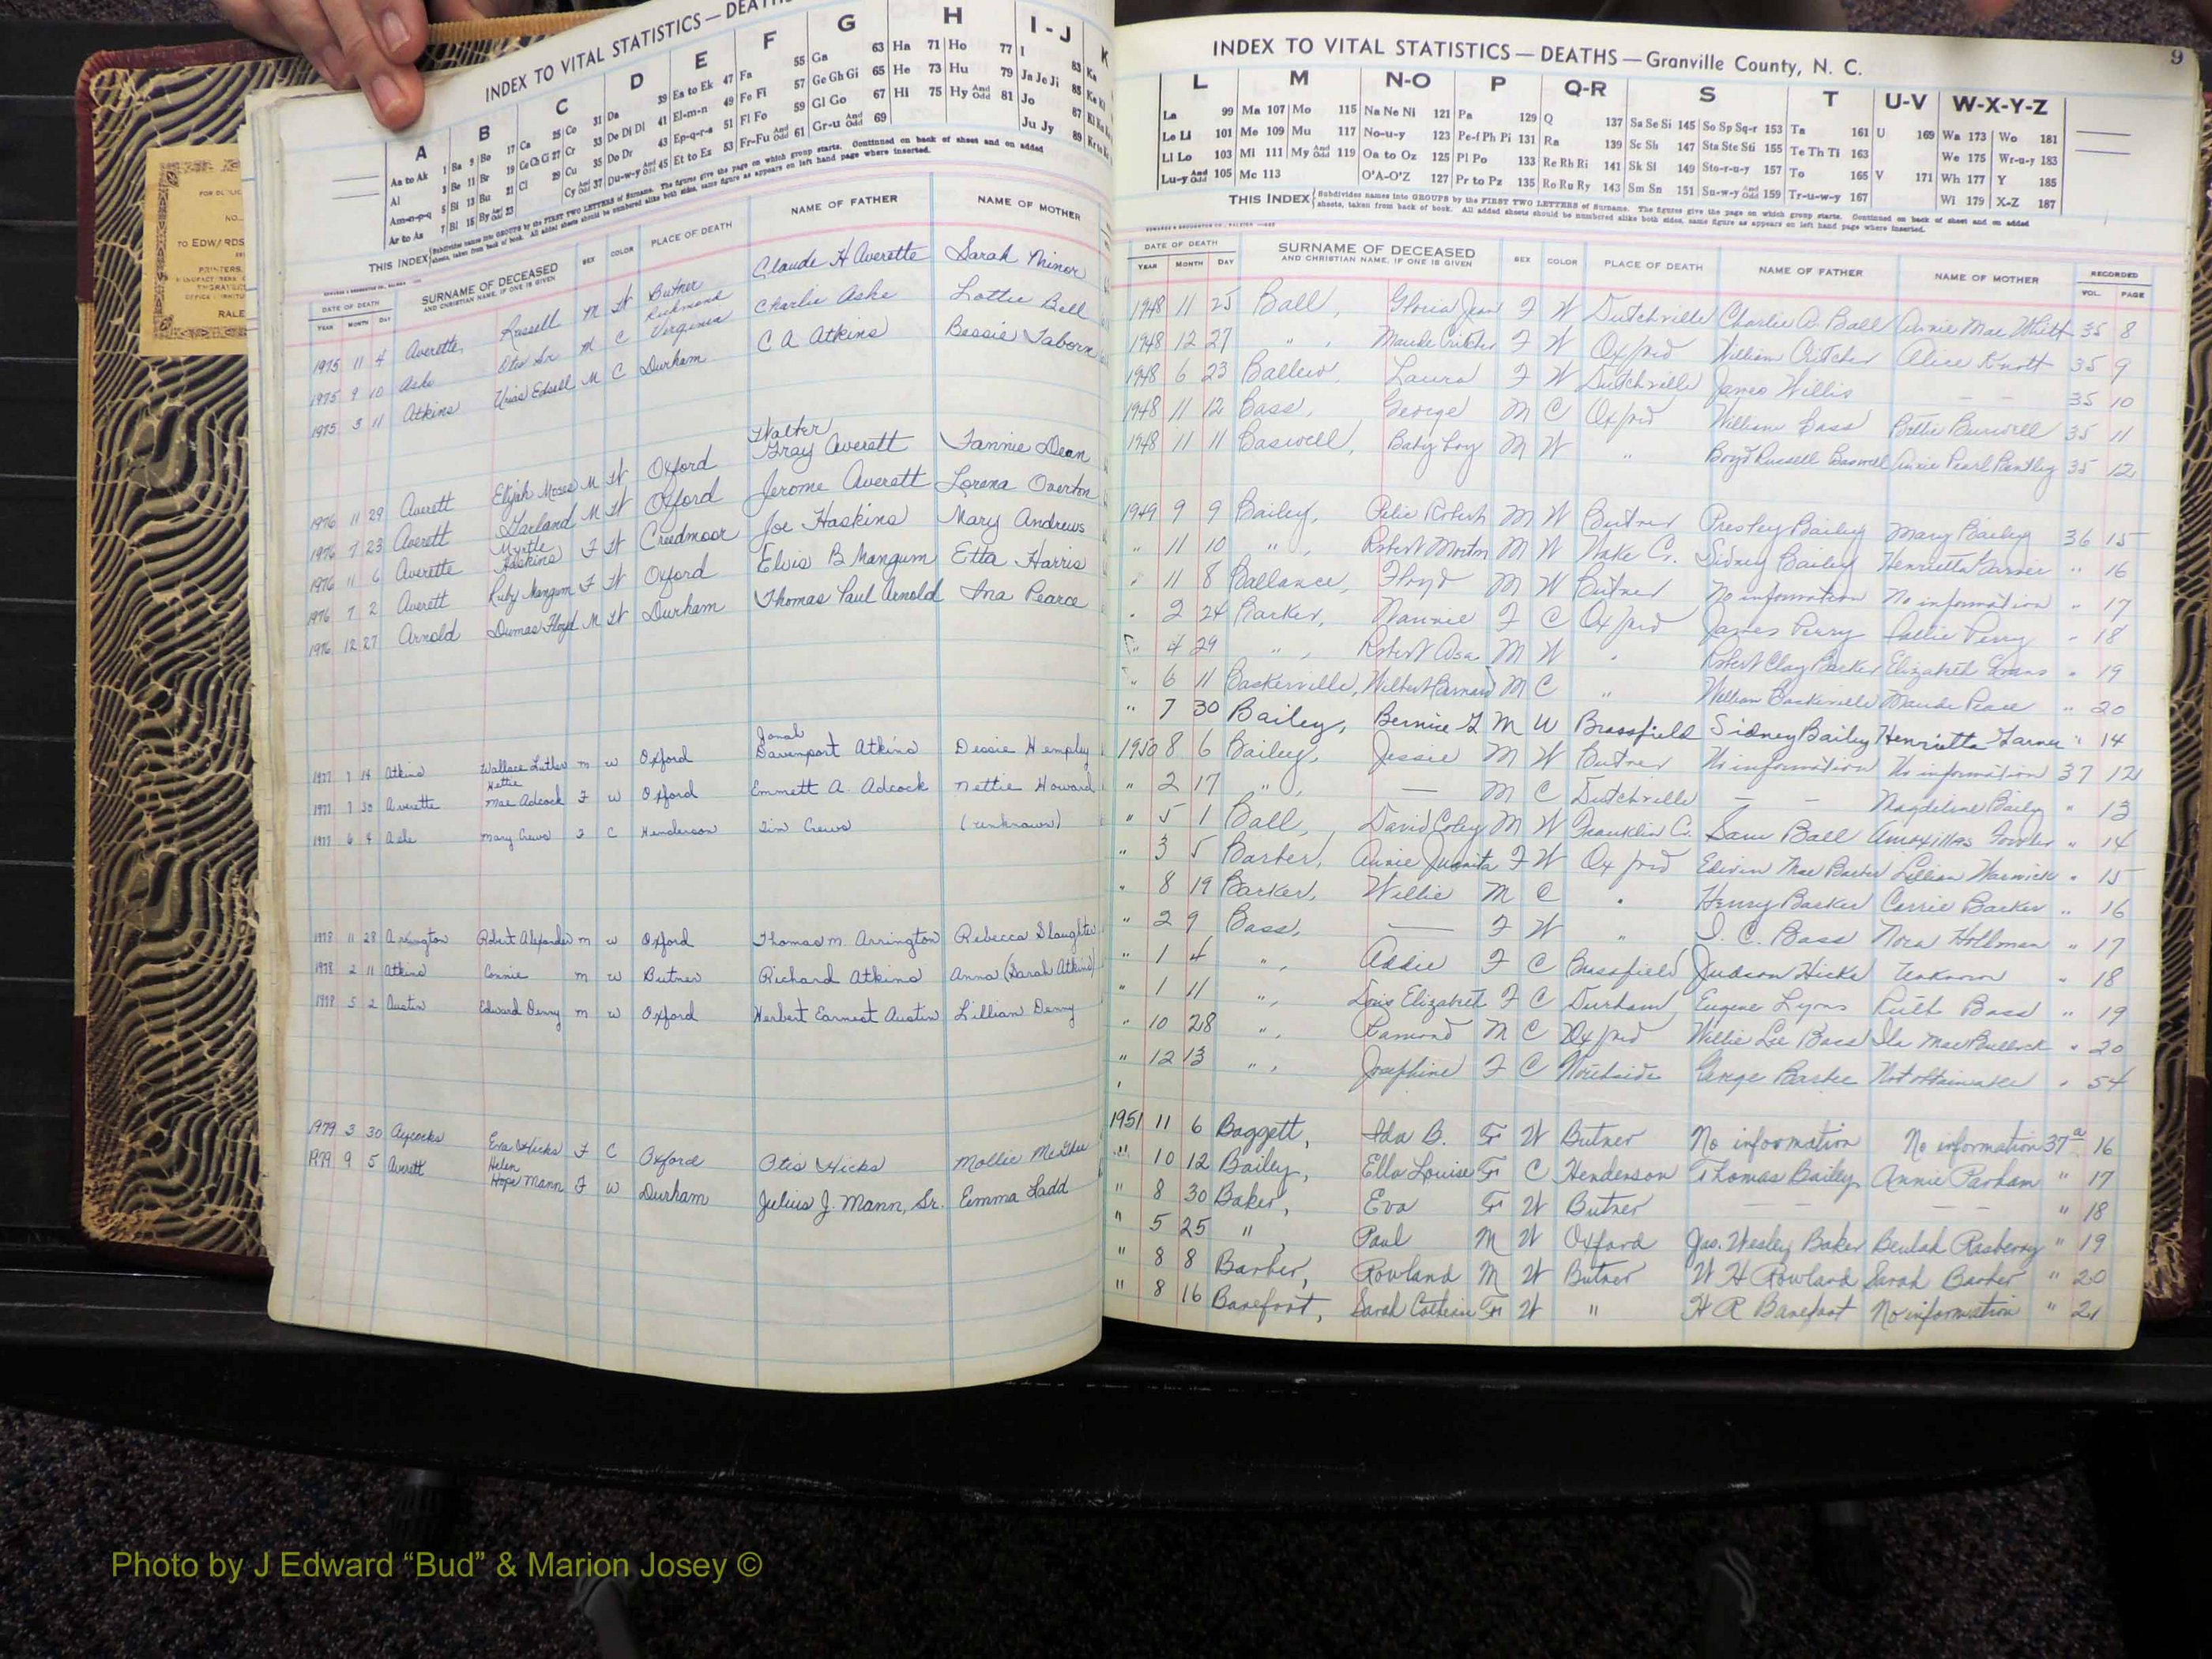 INDEX TO VITAL STATISTICS — DEATHS
A B C D E F G H I-J K
Aa to Ak 1 Ba 9 Bo 17 Ca 25 Co 31 Da 39 Ea to Ek 47 Fa 55 Ga 63 Ha 71 Ho 77 I 83 Ka
Al 3 Be 11 Br 19 Ce Ch Ci 27 Cr 33 De Di Dl 41 El-m-n 49 Fe Fi 57 Ge Gh Gi 65 He 73 Hu 79 Ja Je Ji 85
Am-n-p-q 5 Bi 13 Bu 21 Cl 29 Cu 35 Do Dr 43 Ep-q-r-s 51 Fl Fo 59 Gl Go 67 Hi 75 Hy And Odd 81 Jo 87
Ar to Az 7 Bl 15 By And Odd 23 Cy And Odd 37 Du-w-y And Odd 45 Et to Ez 53 Fr-Fu And Odd 61 Gr-u And Odd 69 Ju Jy 89
THIS INDEX Subdivides names into GROUPS by the FIRST TWO LETTERS of Surname. The figures give the page on which group starts. Continued on back of sheet and on added
sheets, taken from back of book. All added sheets should be numbered alike both sides, same figure as appears on left hand page where inserted.
DATE OF DEATH SURNAME OF DECEASED SEX COLOR PLACE OF DEATH NAME OF FATHER NAME OF MOTHER
YEAR MONTH DAY AND CHRISTIAN NAME, IF ONE IS GIVEN
1975 11 4 Averette, Russell M W Butner Claude H Averette Sarah Minor
1975 9 10 Aske Otis Sr. M C Richmond Virginia Charlie Aske Lottie Bell
1975 3 11 Atkins Urias Edsell M C Durham C A Atkins Bessie Taborn
1976 11 29 Averett Elijah Moses M W Oxford Walter Gray Averett Fannie Dean
1976 7 23 Averett Garland M W Oxford Jerome Averett Lorena Overton
1976 11 6 Averette Myrtle Haskins F W Creedmoor Joe Haskins Mary Andrews
1976 7 2 Averett Ruby Mangum F W Oxford Elvis B Mangum Etta Harris
1976 12 27 Arnold Dumas Floyd M W Durham Thomas Paul Arnold Ina Pearce
1977 7 14 Atkins Wallace Luther m w Oxford Jonah Davenport Atkins Dessie Hempley
1977 7 30 Averette Hettie Mae Adcock F w Oxford Emmett A. Adcock Nettie Howard
1977 6 4 Aske Mary Crews F C Henderson Jim Crews (unknown)
1978 11 28 Arrington Robert Alexander m w Oxford Thomas M. Arrington Rebecca Slaughter
1978 2 11 Atkins Connie m w Butner Richard Atkins Anna (Sarah Atkins)
1978 5 2 Austin Edward Denny m w Oxford Herbert Earnest Austin Lillian Denny
1979 3 30 Aycocks Eva Hicks F C Oxford Otis Hicks Mollie McGhee
1979 9 5 Averett Helen Hope Mann F W Durham Julius J. Mann, Sr. Emma Ladd
INDEX TO VITAL STATISTICS — DEATHS — Granville County, N. C. 9
L M N-O P Q-R S T U-V W-X-Y-Z
La 99 Ma 107 Mo 115 Na Ne Ni 121 Pa 129 Q 137 Sa Se Si 145 So Sp Sq-r 153 Ta 161 U 169 Wa 173 Wo 181
Le Li 101 Me 109 Mu 117 No-u-y 123 Pe-f Ph Pi 131 Ra 139 Sc Sh 147 Sta Ste Sti 155 Te Th Ti 163 We 175 Wr-u-y 183
Ll Lo 103 Mi 111 My And Odd 119 Oa to Oz 125 Pl Po 133 Re Rh Ri 141 Sk Sl 149 Sto-r-u-y 157 To 165 V 171 Wh 177 Y 185
Lu-y And Odd 105 Mc 113 O'A-O'Z 127 Pr to Pz 135 Ro Ru Ry 143 Sm Sn 151 Su-w-y And Odd 159 Tr-u-w-y 167 Wi 179 X-Z 187
THIS INDEX Subdivides names into GROUPS by the FIRST TWO LETTERS of Surname. The figures give the page on which group starts. Continued on back of sheet and on added
sheets, taken from back of book. All added sheets should be numbered alike both sides, same figure as appears on left hand page where inserted.
DATE OF DEATH SURNAME OF DECEASED SEX COLOR PLACE OF DEATH NAME OF FATHER NAME OF MOTHER RECORDED
YEAR MONTH DAY AND CHRISTIAN NAME, IF ONE IS GIVEN VOL. PAGE
1948 11 25 Ball, Gloria Jean F W Dutchville Charlie A. Ball Annie Mae Whitt 35 8
1948 12 27 " , Maude Critcher F W Oxford William Critcher Alice Knott 35 9
1948 6 23 Ballew, Laura F W Dutchville James Willis — — 35 10
1948 11 12 Bass, George M C Oxford William Bass Bettie Burwell 35 11
1948 11 11 Baswell, Baby boy M W " Boyd Russell Baswell Annie Pearl Pantley 35 12
1949 9 9 Bailey, Robert M W Butner Presley Bailey Mary Bailey 36 15
" 11 10 " , Robert Morton M W Wake Co. Sidney Bailey Henrietta Garner " 16
" 11 8 Ballance, Floyd M W Butner No information No information " 17
" 2 24 Barker, Nannie F C Oxford James Perry Sallie Perry " 18
" 4 29 " , Robert Asa M W " Robert Clay Barker Elizabeth Evans " 19
" 6 11 Baskerville, Wilbert Barnard M C " William Baskerville Maude Pease " 20
" 7 30 Bailey, Bernice L M W Brassfield Sidney Bailey Henrietta Garner " 14
1950 8 6 Bailey, Jessie M W Butner No information No information 37 12
" 2 17 " , — M C Dutchville — — Magdeline Bailey " 13
" 5 1 Ball, David Coley M W Franklin C. Sam Ball Amoxillas Fowler " 14
" 3 5 Barber, Annie Juanita F W Oxford Edwin Mae Barber Lillian Warwick " 15
" 8 19 Barker, Willie M C " Henry Barker Carrie Barker " 16
" 2 9 Bass, — F W " J. C. Bass Nora Hollman " 17
" 1 4 " , Addie F C Brassfield Judson Hicks Unknown " 18
" 1 11 " , Doris Elizabeth F C Durham Eugene Lyons Ruth Bass " 19
" 10 28 " , Ramond M C Oxford Willie Lee Bass Ila Mae Bullock " 20
" 12 13 " , Josephine F C Northside George Baske Not obtainable " 54
1951 11 6 Baggett, Ida B. F W Butner No information No information 37a 16
" 10 12 Bailey, Ella Louise F C Henderson Thomas Bailey Annie Parham " 17
" 8 30 Baker, Eva F W Butner — — — — " 18
" 5 25 " , Paul M W Oxford Jas. Wesley Baker Beulah Rasberry " 19
" 8 8 Barber, Rowland M W Butner W H Rowland Sarah Barber " 20
" 8 16 Barefoot, Sarah Catherin F W " H R Barefoot No information " 21
Photo by J Edward “Bud” & Marion Josey ©